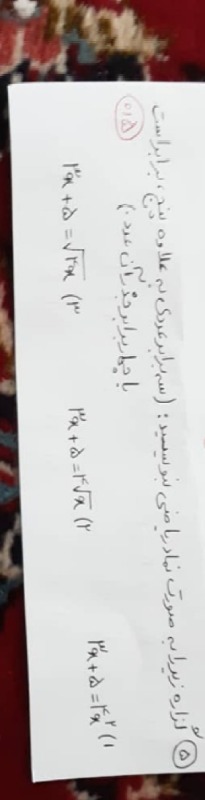 ۵) گزاره زیر را به صورت نماد ریاضی بنویسید: (سه برابر عددی به علاوه پنج، برابر است
با چهار برابر جذر آن عدد.) ۰/۵
۱) ۳x + ۵ = ۴x² ۲) ۳x + ۵ = ۴√x ۳) ۳x + ۵ = √۴x